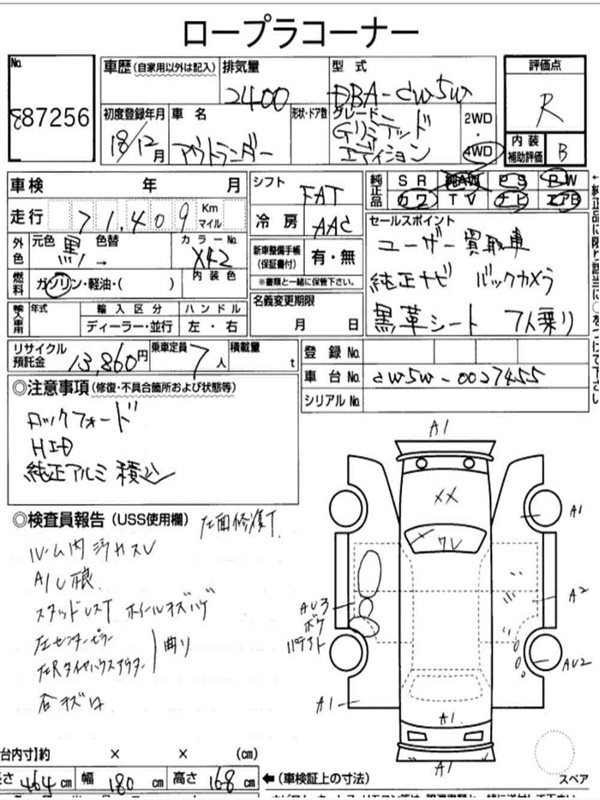 ロープラコーナー
No.
87256
車歴(自家用以外は記入)
排気量
2400
型式
DBA-CW5W
評価点
R
初度登録年月
18/12月
車名
アウトランダー
形状・ドア数
グレード
Gリミテッド
エディション
2WD
・
4WD
内装
補助評価
B
車検 年 月
シフト
FAT
純正品
SR 純AW PS PW
カワ TV ナビ エアB
走行
71,409
Km
マイル
冷房
AAC
セールスポイント
ユーザー買取車
純正ナビ バックカメラ
黒革シート 7人乗り
外色
元色
黒
色替
→
カラーNo.
X42
新車整備手帳
(保証書付)
有・無
※書類と一緒に保管下さい。
燃料
ガソリン・軽油・( )
内装色
名義変更期限
月 日
輸入車用
年式
輸入区分
ディーラー・並行
ハンドル
左・右
リサイクル
預託金
13,860円
乗車定員
7人
積載量
t
登録No.
車台No.
CW5W-0027455
シリアルNo.
◎注意事項(修復・不具合箇所および状態等)
ロックフォード
HID
純正アルミ積込
◎検査員報告(USS使用欄)
左面修復
ルーム内
スタッドレスT ホイールキズ
左センターピラー
左Rタイヤハウスアウター
曲り
A1
XX
A1
A2
AU3
ボケ
AU2
A1
A1
A1
スペア
台内寸)約 × × (cm)
長さ 464cm 幅 180cm 高さ 168cm
←(車検証上の寸法)